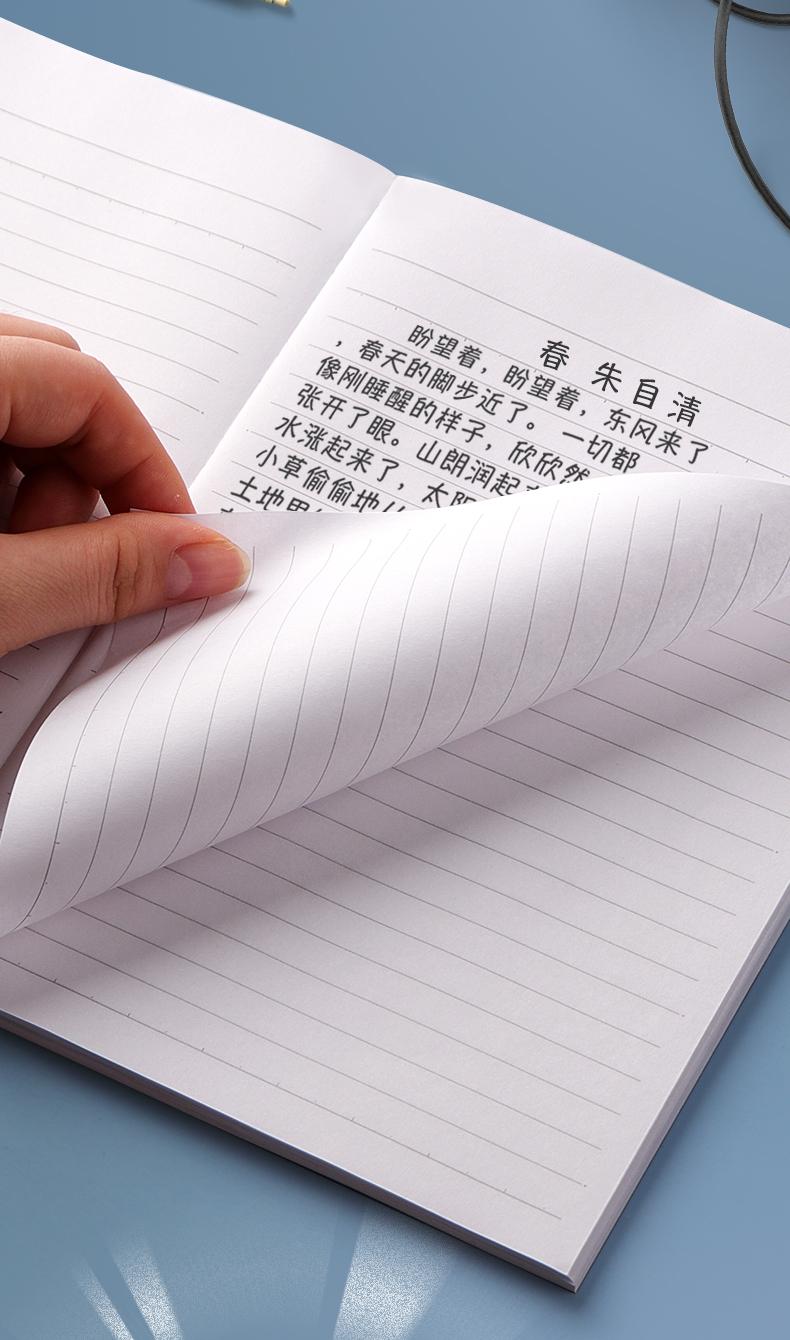 春 朱自清
盼望着，盼望着，东风来了
，春天的脚步近了。一切都
像刚睡醒的样子，欣欣然
张开了眼。山朗润起
水涨起来了，太阳
小草偷偷地
土地里